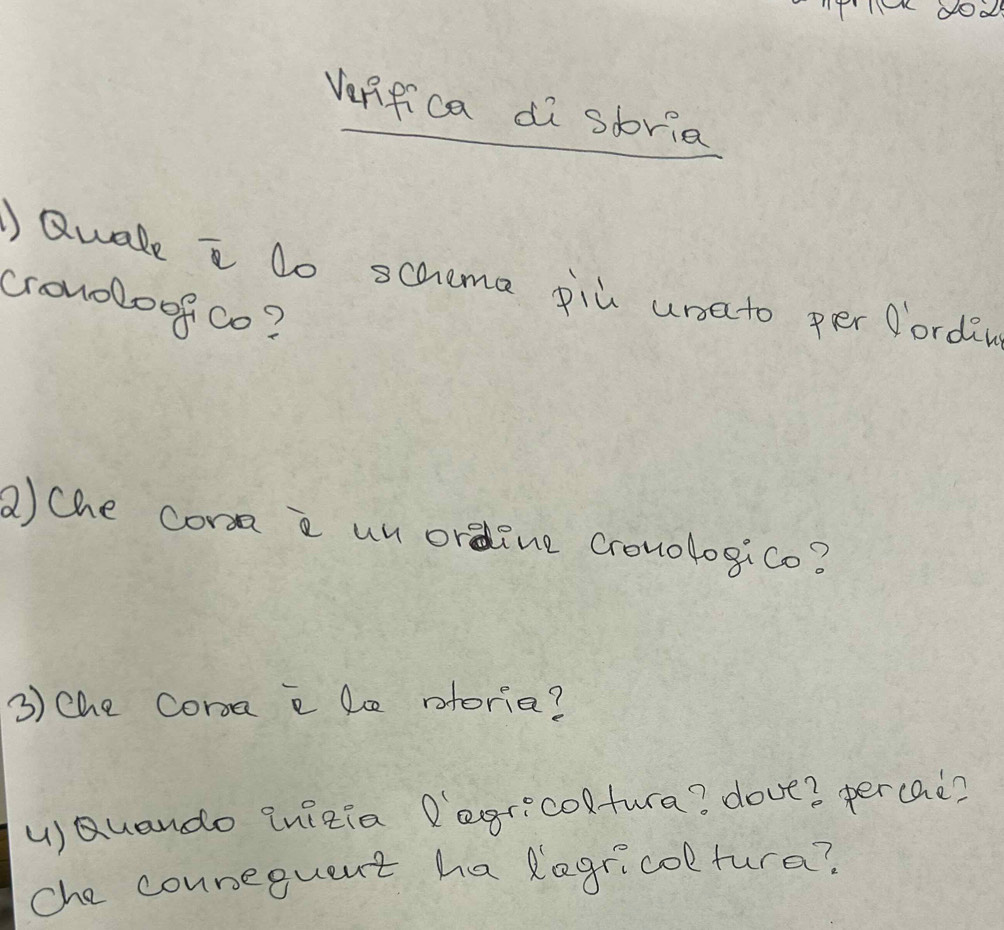 Verifica di storia
1) Quale è lo schema più usato per l'ordine
cronologico?
2) Che cosa è un ordine cronologico?
3) Che cosa è la storia?
4) Quando inizia l'agricoltura? dove? perché?
Che conseguenz ha l'agricoltura?